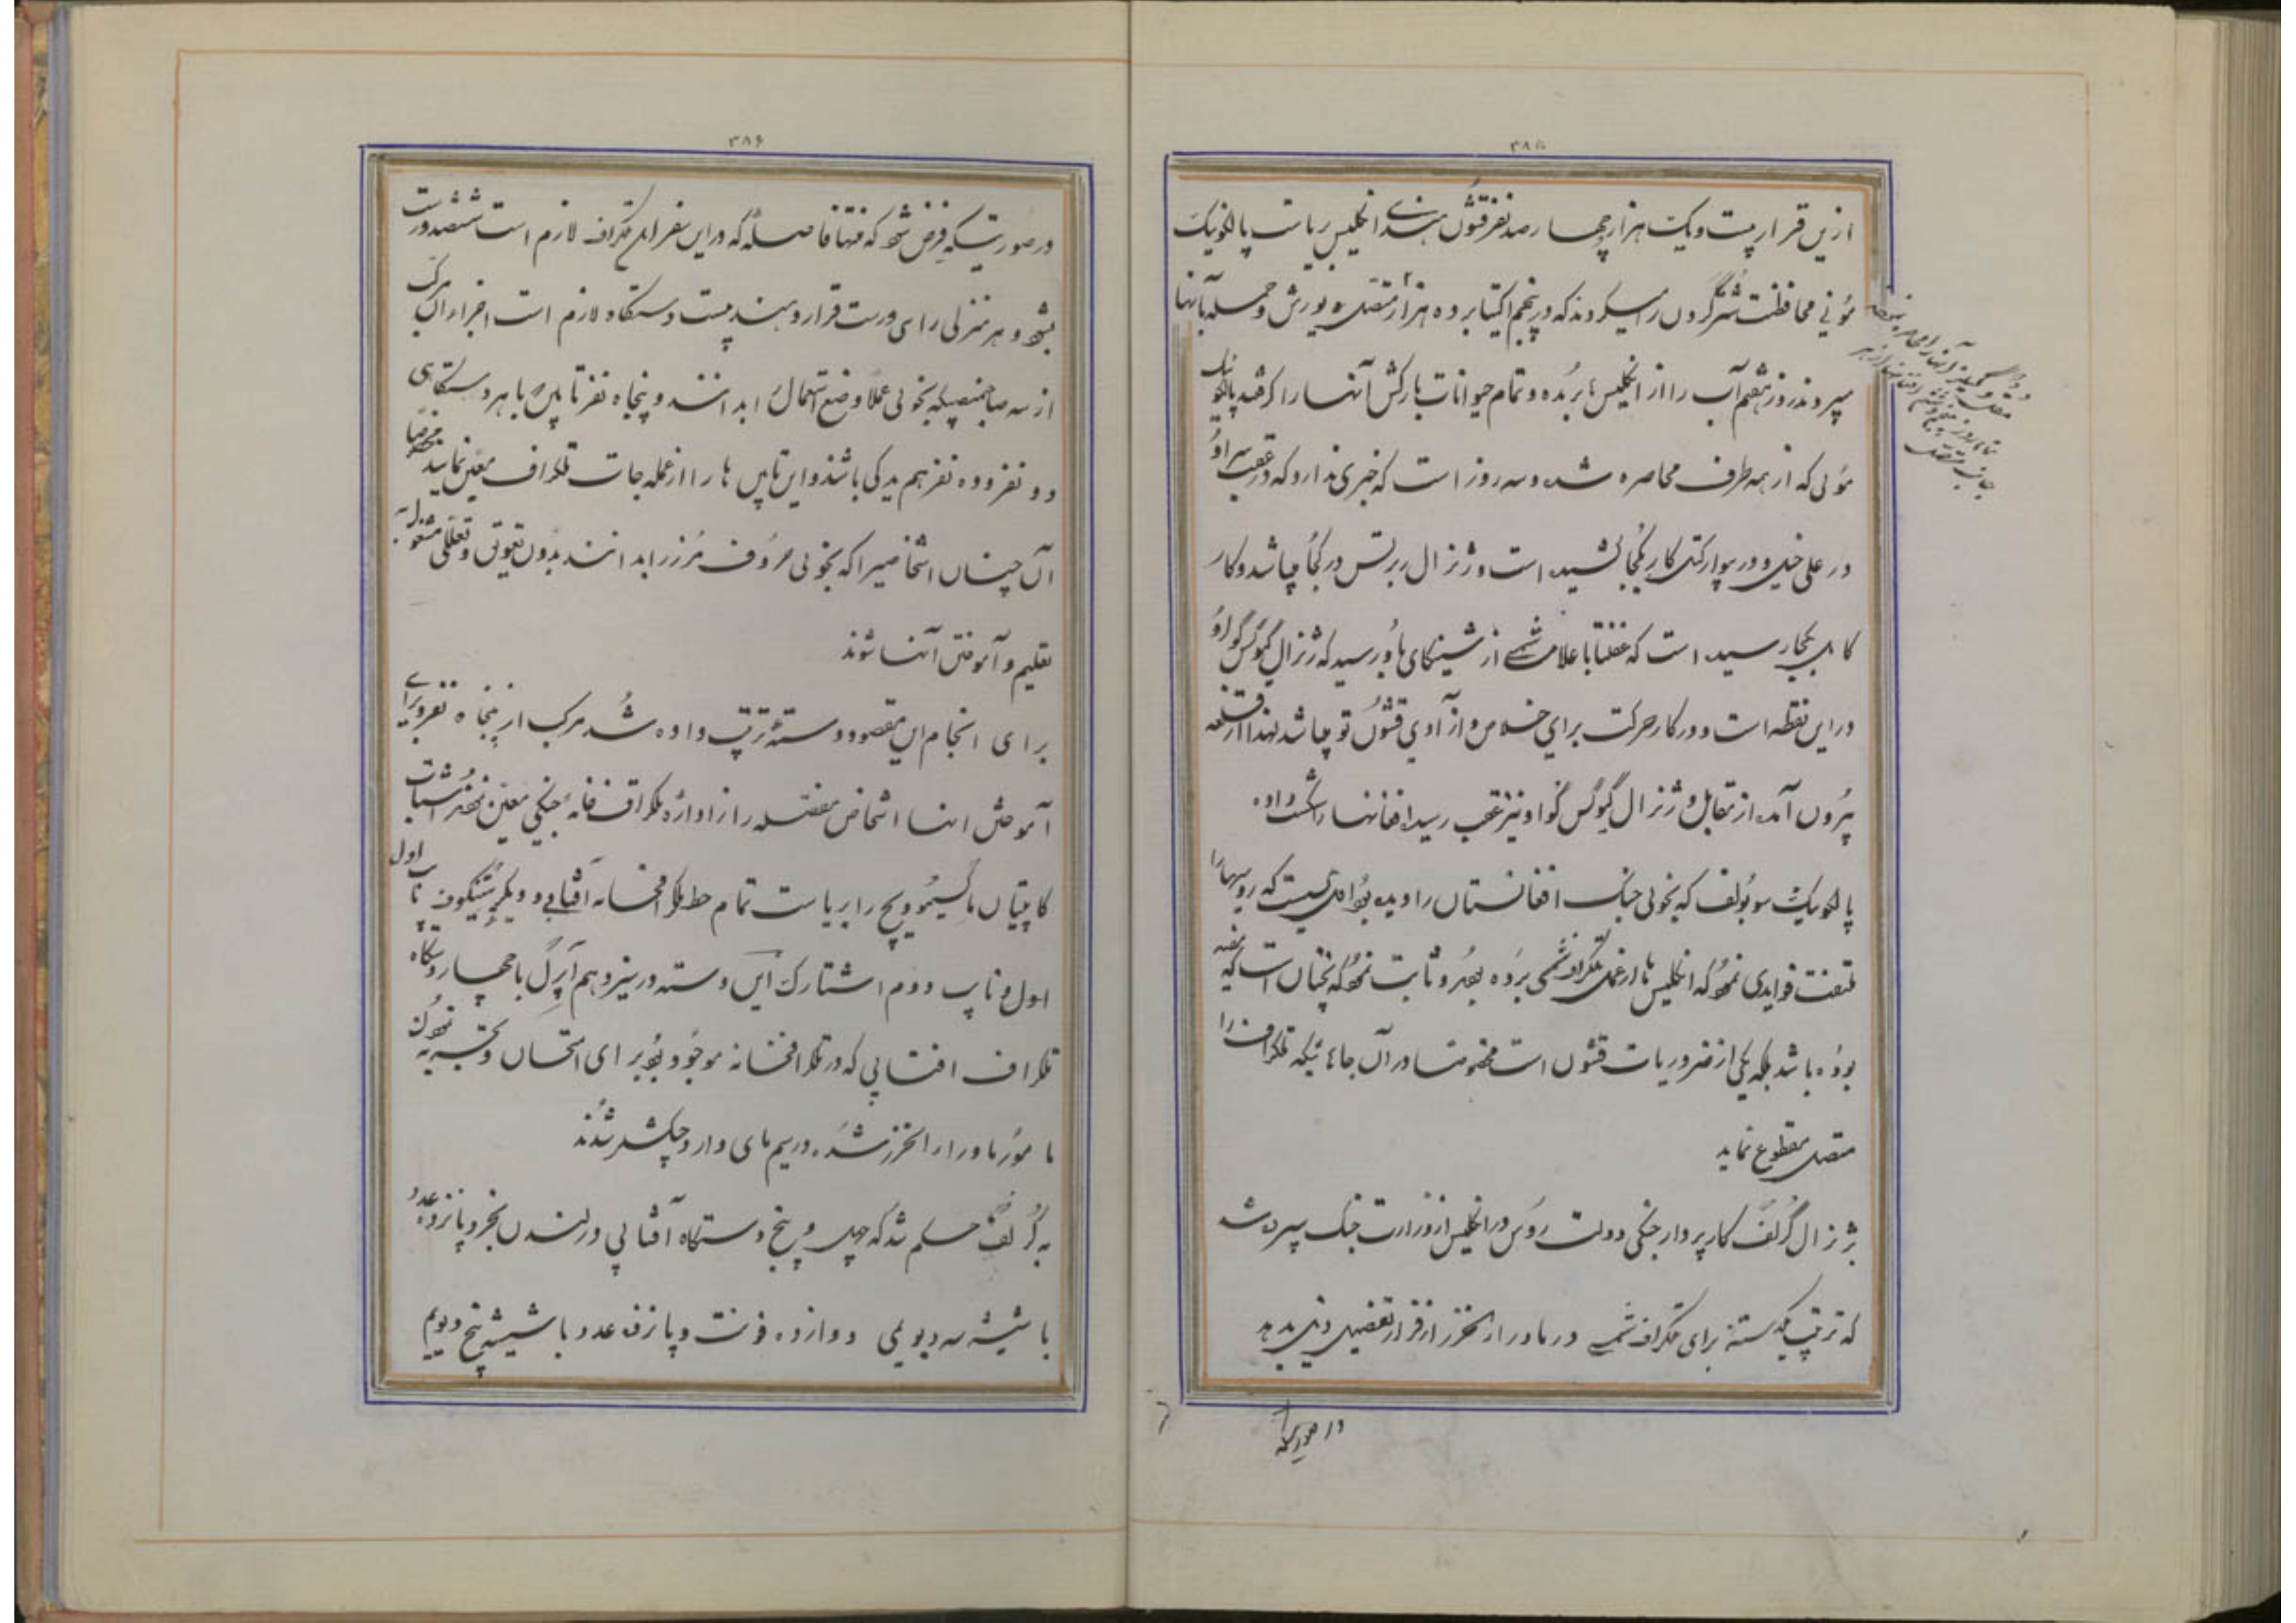 ۳۸۵
ازین قرار بیست و یک هزار چهار صد نفر قشون هندی انگلیس بریاست پالکونیک
مونی محافظت شترگردن را میکردند که در پنجم اکتابر ده هزار متصل به یورش و حمله بآنها
میبردند روز هشتم آب را از انگلیس ها بریده و تمام حیوانات بارکش آنها را گرفتند پالکونیک
مونی که از همه طرف محاصره شده و سه روز است که خبری ندارد که در عقب سر او
در علی خیل و در پیوار کتل کار بکجا کشیده است و ژنرال ربرتس در کجا میباشد و کار
کابل بکجا رسیده است که غفلتا با علامت شمسی از شیتکای باو رسید که ژنرال گیوکس گوا او
در این نقطه است و در کار حرکت برای خلاص و آزادی قشون تو میباشد لهذا از قلعه
بیرون آمده از مقابل و ژنرال گیوکس گوا او نیز عقب رسید افغانها را شکست داده
پالکونیک سوبولف که بخوبی جنگ افغانستان را دیده بود اول کسیست که روسها را
ملتفت فوایدی نمود که انگلیس ها از عمل تلگراف شمسی برده بودند و ثابت نمود که نچنان است که مفید
بوده باشد بلکه یکی از ضروریات قشون است خصوصا در آن جائیکه تلگراف را
متصل مقطوع نماید
ژنرال گرلف کارپرداز جنگی دولت روس در انگلیس از وزارت جنگ سپرده شد
که ترتیب یکدسته برای تلگراف شمسی در ماوراء الخزر از قرار تفصیل ذیل بدهد
در صورتیکه
۳۸۶
در صورتیکه فرض شود که منتها فاصله که در این سفر برای تلگراف لازم است ششصد ورست
بشود و هر منزلی را سی ورست قرار دهند بیست دستگاه لازم است اجزاء آن مرکب
از سه صاحبمنصب که بخوبی عملا وضع استعمال را بدانند و پنجاه نفر تاپیس با هر دستگاهی
دو نفر و ده نفر هم یدکی باشند و این تاپیس ها را از عمله جات تلگراف معین نمایند مخصوصا
آن چنان اشخاصیرا که بخوبی حروف مرز را بدانند بدون تعویق و تعللی مشغول به
تعلیم و آموختن آنها شوند
برای انجام این مقصود دسته ترتیب داده شد مرکب از پنجاه نفر و برای
آموختن اینها اشخاص مفصله را از اداره تلگراف خانه جنگی معین نمودند
کاپیتان ماکسیموویچ را بریاست تمام خط تلگرافخانه آفتابی و دیگر تاپ اول
اول و تاپ دوم اشتارک این دسته در سیزدهم آپرل با چهار دستگاه
تلگراف آفتابی که در تلگرافخانه موجود بود برای امتحان و تجربه نمودن
مامور ماوراء الخزر شده در بیم مای وارد چکشلر شدند
به گرلف حکم شد که چهل و پنج دستگاه آفتابی در لندن بخرد پانزده عدد
با شیشه سه دیویمی دوازده فونت و پانزده عدد با شیشه پنج دیویم